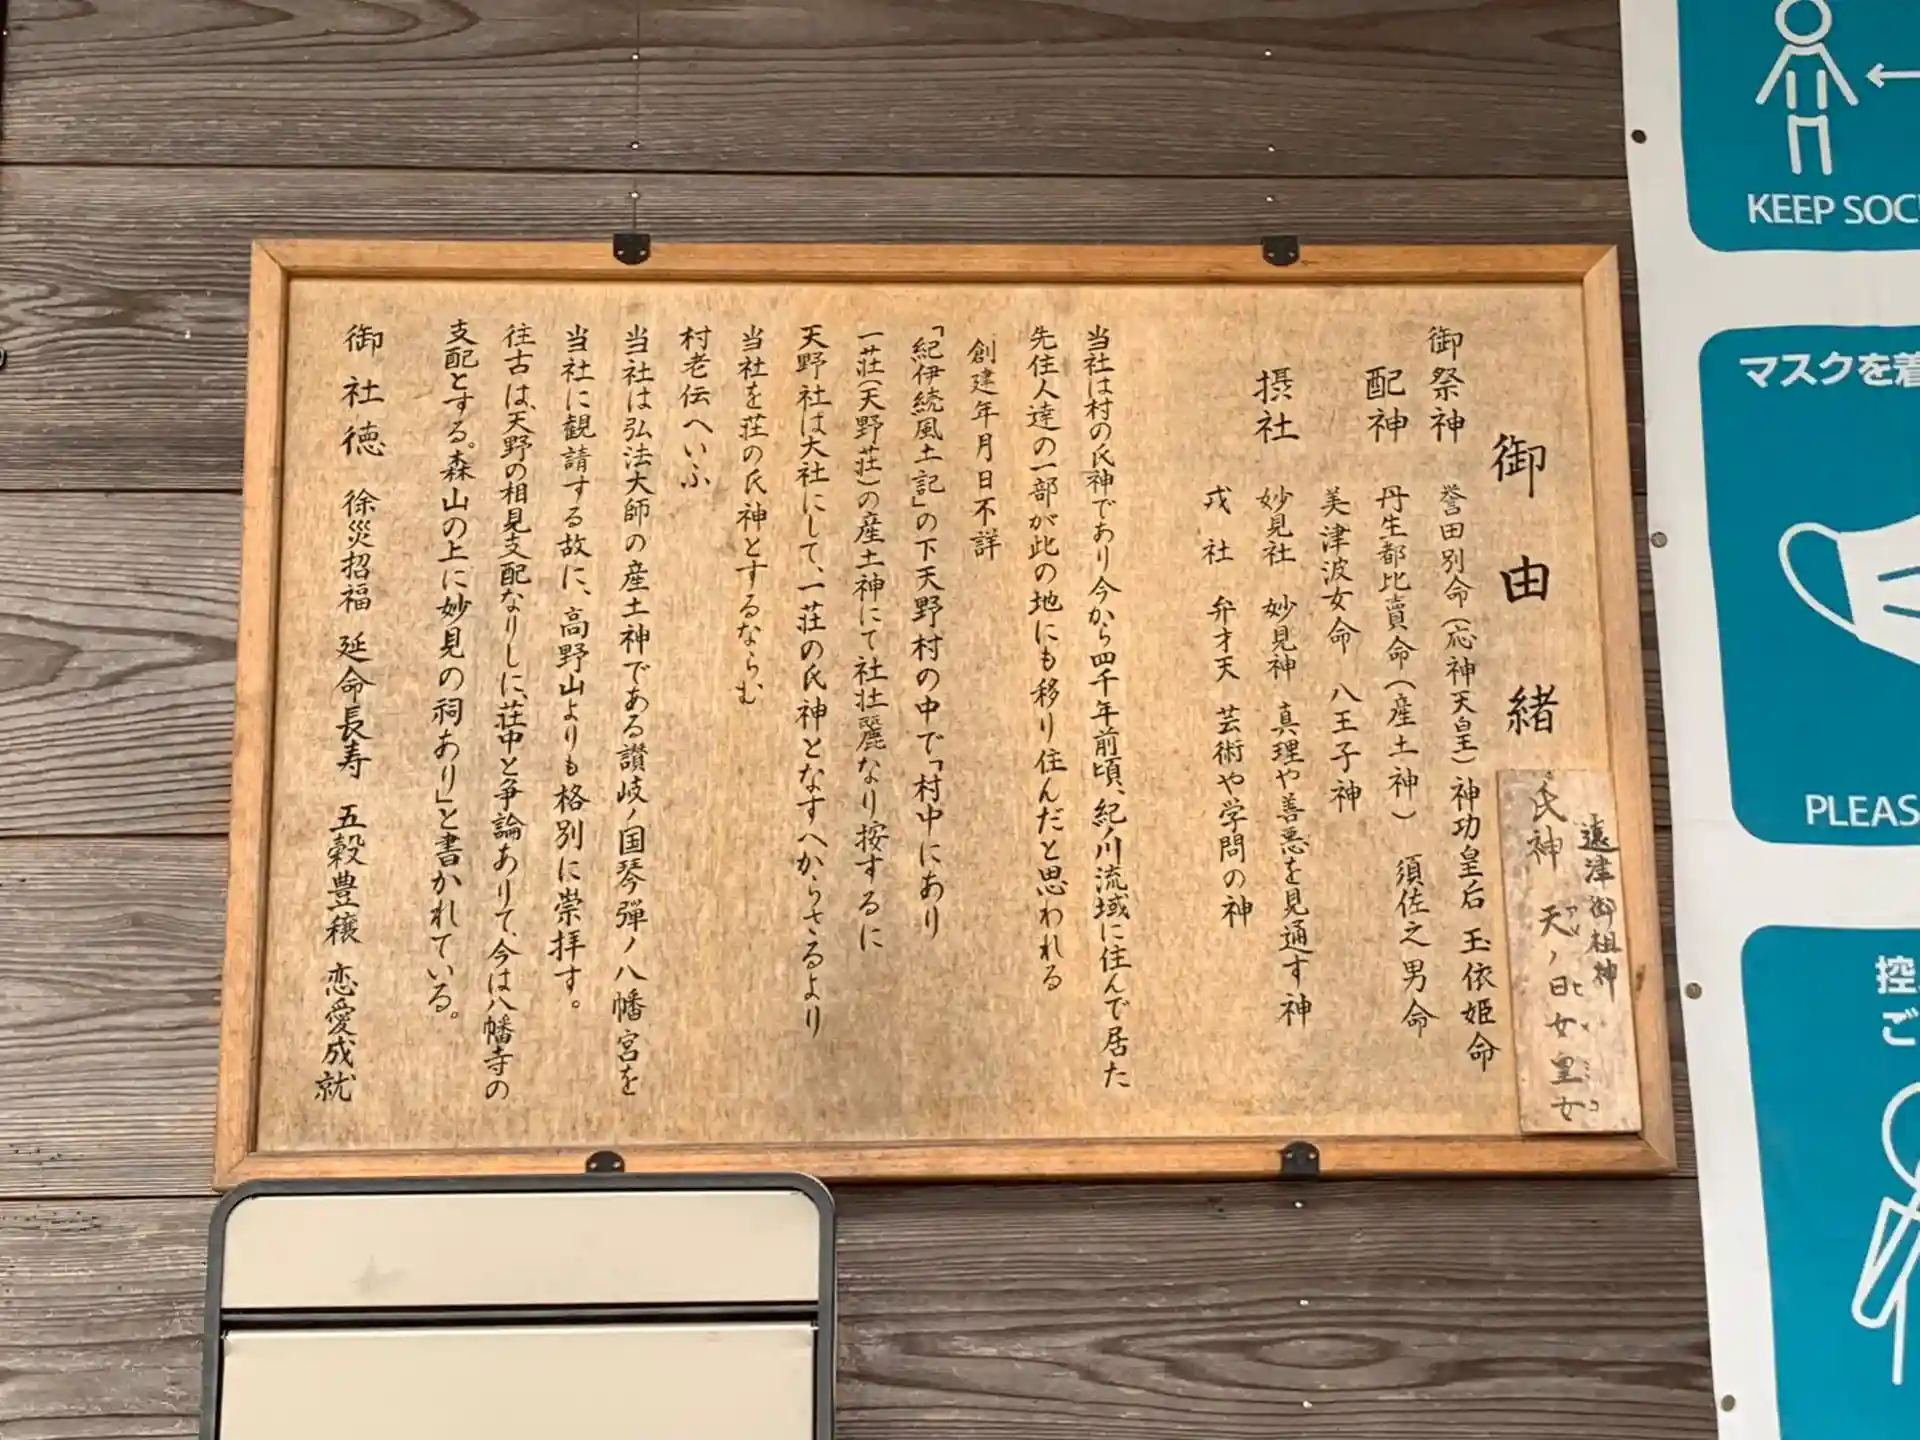 御由緒
遠津御祖神
氏神 天ノ日女皇女
御祭神 誉田別命(応神天皇) 神功皇后 玉依姫命
配神 丹生都比賣命(産土神) 須佐之男命
美津波女命 八王子神
摂社 妙見社 妙見神 真理や善悪を見通す神
戎社 弁才天 芸術や学問の神
当社は村の氏神であり今から四千年前頃、紀ノ川流域に住んで居た
先住人達の一部が此の地にも移り住んだと思われる
創建年月日不詳
「紀伊続風土記」の下天野村の中で「村中にあり
一荘(天野荘)の産土神にて社壮麗なり按するに
天野社は大社にして、一荘の氏神となすへからさるより
当社を荘の氏神とするならむ
村老伝へいふ
当社は弘法大師の産土神である讃岐ノ国琴弾ノ八幡宮を
当社に観請する故に、高野山よりも格別に崇拝す。
往古は、天野の相見支配なりしに、荘中と争論ありて、今は八幡寺の
支配とする。森山の上に妙見の祠あり」と書かれている。
御社徳 徐災招福 延命長寿 五穀豊穣 恋愛成就
KEEP SOC
マスクを着
PLEAS
控
ご